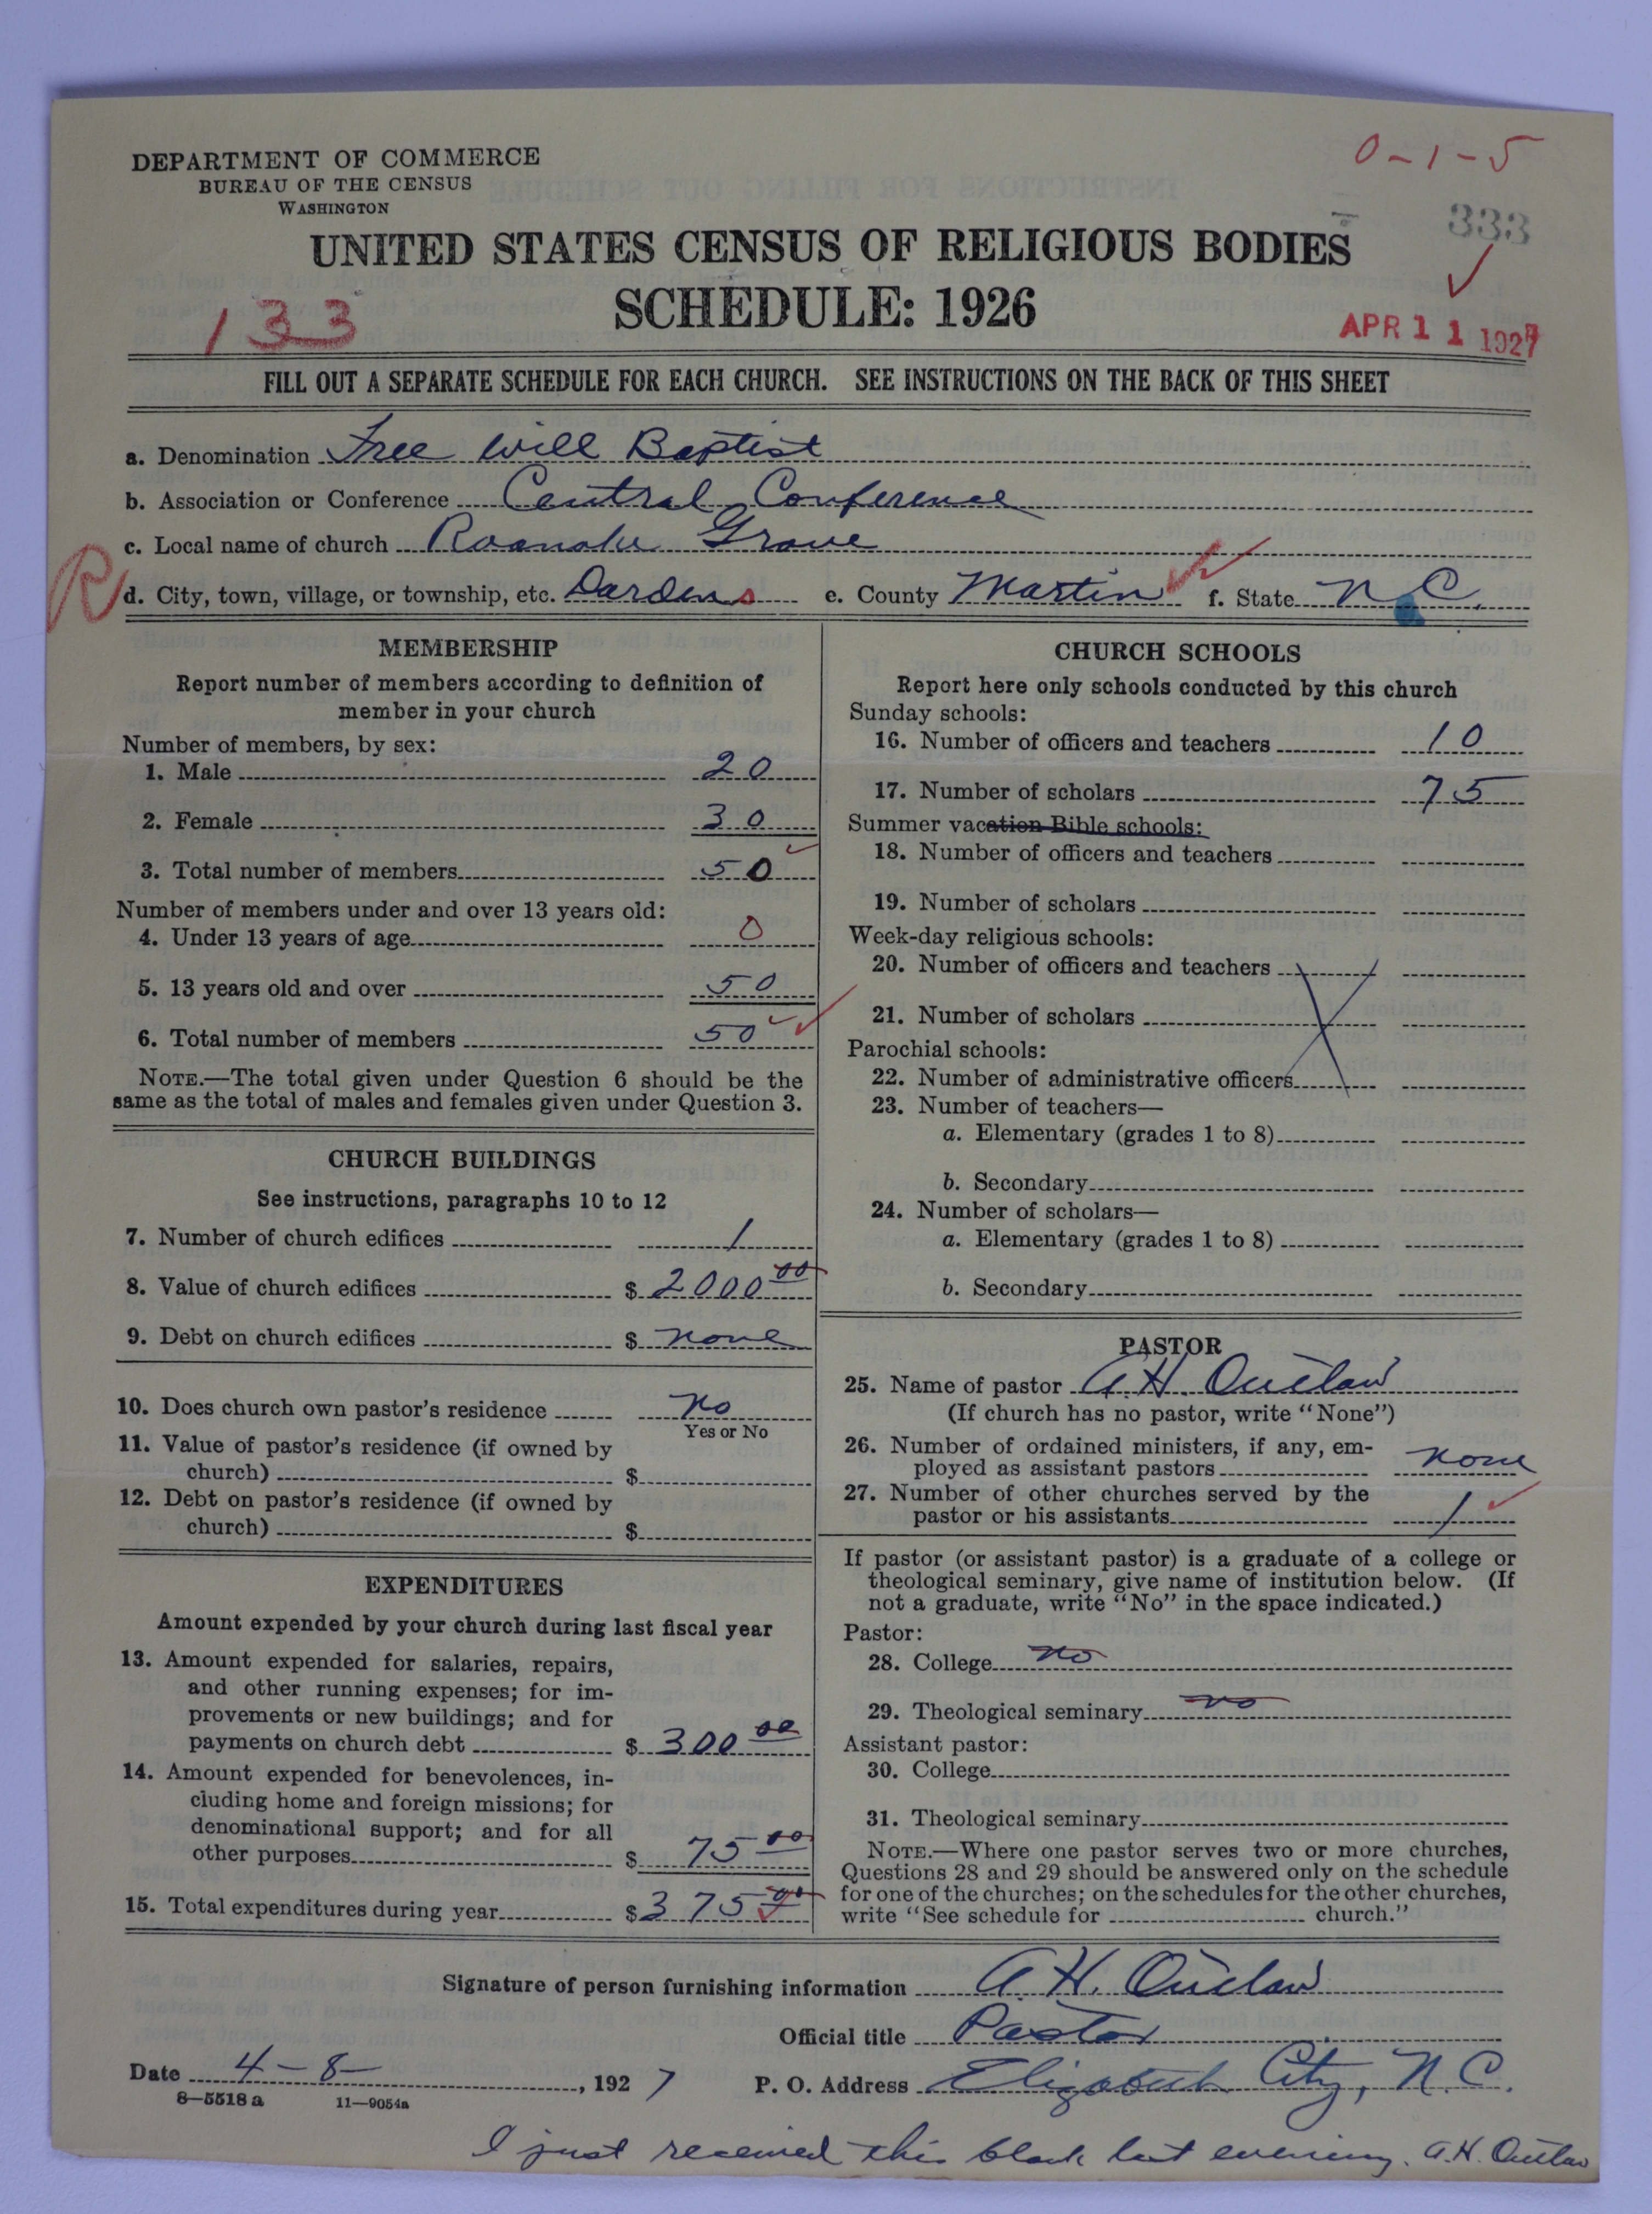 0-1-5
DEPARTMENT OF COMMERCE
BUREAU OF THE CENSUS
WASHINGTON
333
UNITED STATES CENSUS OF RELIGIOUS BODIES
SCHEDULE: 1926
133
APR 11 1927
FILL OUT A SEPARATE SCHEDULE FOR EACH CHURCH. SEE INSTRUCTIONS ON THE BACK OF THIS SHEET
a. Denomination Free Will Baptist
b. Association or Conference Central Conference
c. Local name of church Roanoke Grove
R
d. City, town, village, or township, etc. Dardens e. County Martin f. State N C.
MEMBERSHIP
Report number of members according to definition of
member in your church
Number of members, by sex:
1. Male 20
2. Female 30
3. Total number of members 50
Number of members under and over 13 years old:
4. Under 13 years of age 0
5. 13 years old and over 50
6. Total number of members 50
NOTE.—The total given under Question 6 should be the
same as the total of males and females given under Question 3.
CHURCH BUILDINGS
See instructions, paragraphs 10 to 12
7. Number of church edifices 1
8. Value of church edifices $ 2000 00
9. Debt on church edifices $ none
10. Does church own pastor's residence no
Yes or No
11. Value of pastor's residence (if owned by
church) $
12. Debt on pastor's residence (if owned by
church) $
EXPENDITURES
Amount expended by your church during last fiscal year
13. Amount expended for salaries, repairs,
and other running expenses; for im-
provements or new buildings; and for
payments on church debt $ 300 00
14. Amount expended for benevolences, in-
cluding home and foreign missions; for
denominational support; and for all
other purposes $ 75 00
15. Total expenditures during year $ 375 00
CHURCH SCHOOLS
Report here only schools conducted by this church
Sunday schools:
16. Number of officers and teachers 10
17. Number of scholars 75
Summer vacation Bible schools:
18. Number of officers and teachers
19. Number of scholars
Week-day religious schools:
20. Number of officers and teachers
21. Number of scholars
Parochial schools:
22. Number of administrative officers
23. Number of teachers—
a. Elementary (grades 1 to 8)
b. Secondary
24. Number of scholars—
a. Elementary (grades 1 to 8)
b. Secondary
PASTOR
25. Name of pastor A. H. Outlaw
(If church has no pastor, write "None")
26. Number of ordained ministers, if any, em-
ployed as assistant pastors none
27. Number of other churches served by the
pastor or his assistants 1
If pastor (or assistant pastor) is a graduate of a college or
theological seminary, give name of institution below. (If
not a graduate, write "No" in the space indicated.)
Pastor:
28. College no
29. Theological seminary no
Assistant pastor:
30. College
31. Theological seminary
NOTE.—Where one pastor serves two or more churches,
Questions 28 and 29 should be answered only on the schedule
for one of the churches; on the schedules for the other churches,
write "See schedule for church."
Signature of person furnishing information A. H. Outlaw
Official title Pastor
Date 4-8-, 1927 P. O. Address Elizabeth City, N. C.
8—5518 a 11—9054a
I just received this blank last evening. A. H. Outlaw